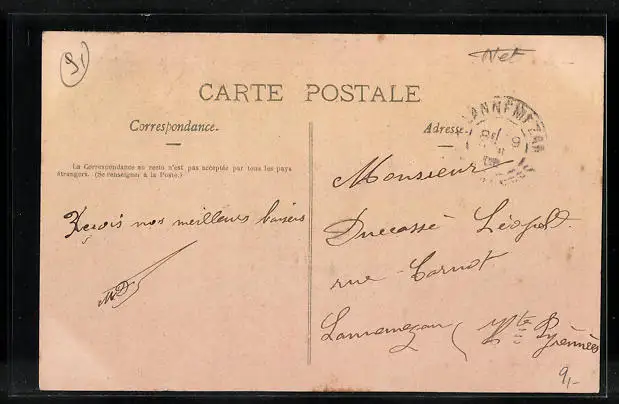 91
Net
CARTE POSTALE
Correspondance.
Adresse
La Correspondance au recto n'est pas acceptée par tous les pays
étrangers. (Se renseigner à la Poste.)
LANNEMEZAN
Reçois nos meilleurs baisers
MD
Monsieur
Ducassé Léopold
rue Carnot
Lannemezan (Htes Pyrénées
9,-